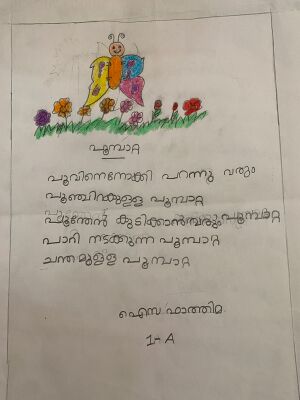 പൂമ്പാറ്റ
പൂവിനെനോക്കി പറന്നു വരും
പൂഞ്ചിറകുള്ള പൂമ്പാറ്റ
പൂന്തേൻ കുടിക്കാൻ വരും പൂമ്പാറ്റ
പാറി നടക്കുന്ന പൂമ്പാറ്റ
ചന്തമുള്ള പൂമ്പാറ്റ
ഐസ ഫാത്തിമ
1-A